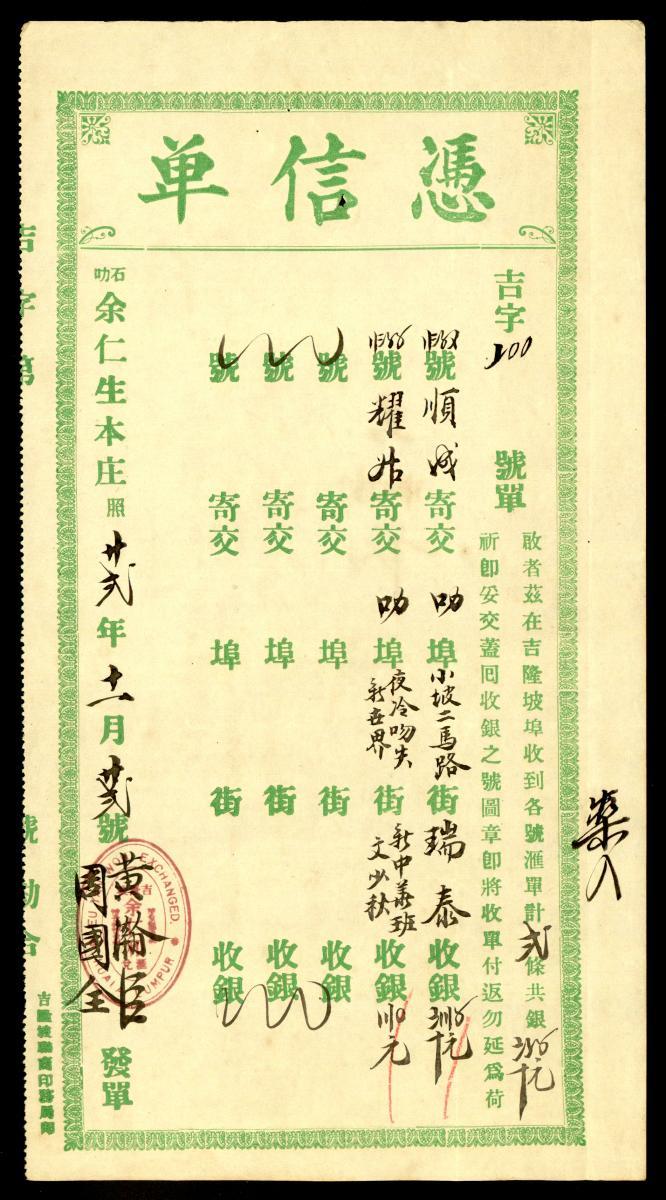 憑信单
柴入
啟者茲在吉隆坡埠收到各號滙單計弍條共銀
祈即妥交蓋囘收銀之號圖章即將收單付返勿延爲荷
吉字 100 號單
號順成寄交叻埠小坡二馬路街瑞泰收銀元
號耀准寄交叻埠夜冷吻失新世界街新中華班文少秋收銀元
號 寄交 埠 街 收銀
號 寄交 埠 街 收銀
號 寄交 埠 街 收銀
石叻余仁生本庄照廿弍年十一月廿弍號黃瀚臣周國全發單
EXCHANGED.
吉隆坡聯商印務局印
吉字第 號